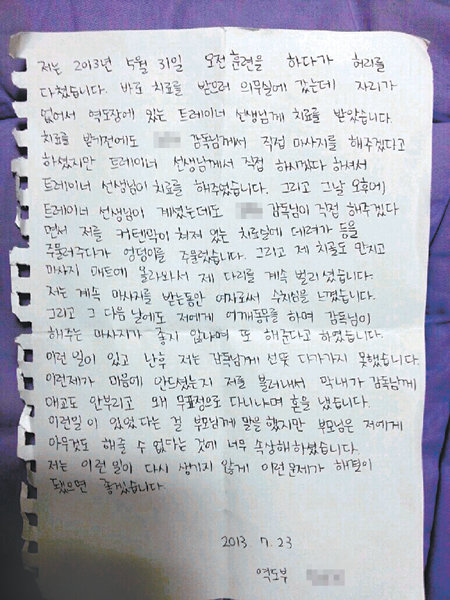 저는 2013년 5월 31일 오전 훈련을 하다가 허리를
다쳤습니다. 바로 치료를 받으러 의무실에 갔는데 자리가
없어서 역도장에 있는 트레이너 선생님께 치료를 받았습니다.
치료를 받기전에도 감독님께서 직접 마사지를 해주겠다고
하셨지만 트레이너 선생님께서 직접 하시겠다 하셔서
트레이너 선생님이 치료를 해주셨습니다. 그리고 그날 오후에
트레이너 선생님이 계셨는데도 감독님이 직접 해주겠다
면서 저를 커텐막이 쳐져 있는 치료실에 데려가 등을
주물러주다가 엉덩이를 주물렀습니다. 그리고 제 치골도 만지고
마사지 매트에 올라와서 제 다리를 계속 벌리셨습니다.
저는 계속 마사지를 받는동안 여자로써 수치심을 느꼈습니다.
그리고 그 다음 날에도 저에게 어깨동무를 하며 감독님이
해주는 마사지가 좋지 않냐며 또 해준다고 하였습니다.
이런 일이 있고 난후 저는 감독님께 선뜻 다가가지 못했습니다.
이런제가 마음에 안드셨는지 저를 불러내서 막내가 감독님께
애교도 안부리고 왜 무표정으로 다니냐며 혼을 냈습니다.
이런일이 있었다는 걸 부모님께 말을 했지만 부모님은 저에게
아무것도 해줄 수 없다는 것에 너무 속상해하셨습니다.
저는 이런 일이 다시 생기지 않게 이런 문제가 해결이
됐으면 좋겠습니다.
2013. 7. 23
역도부